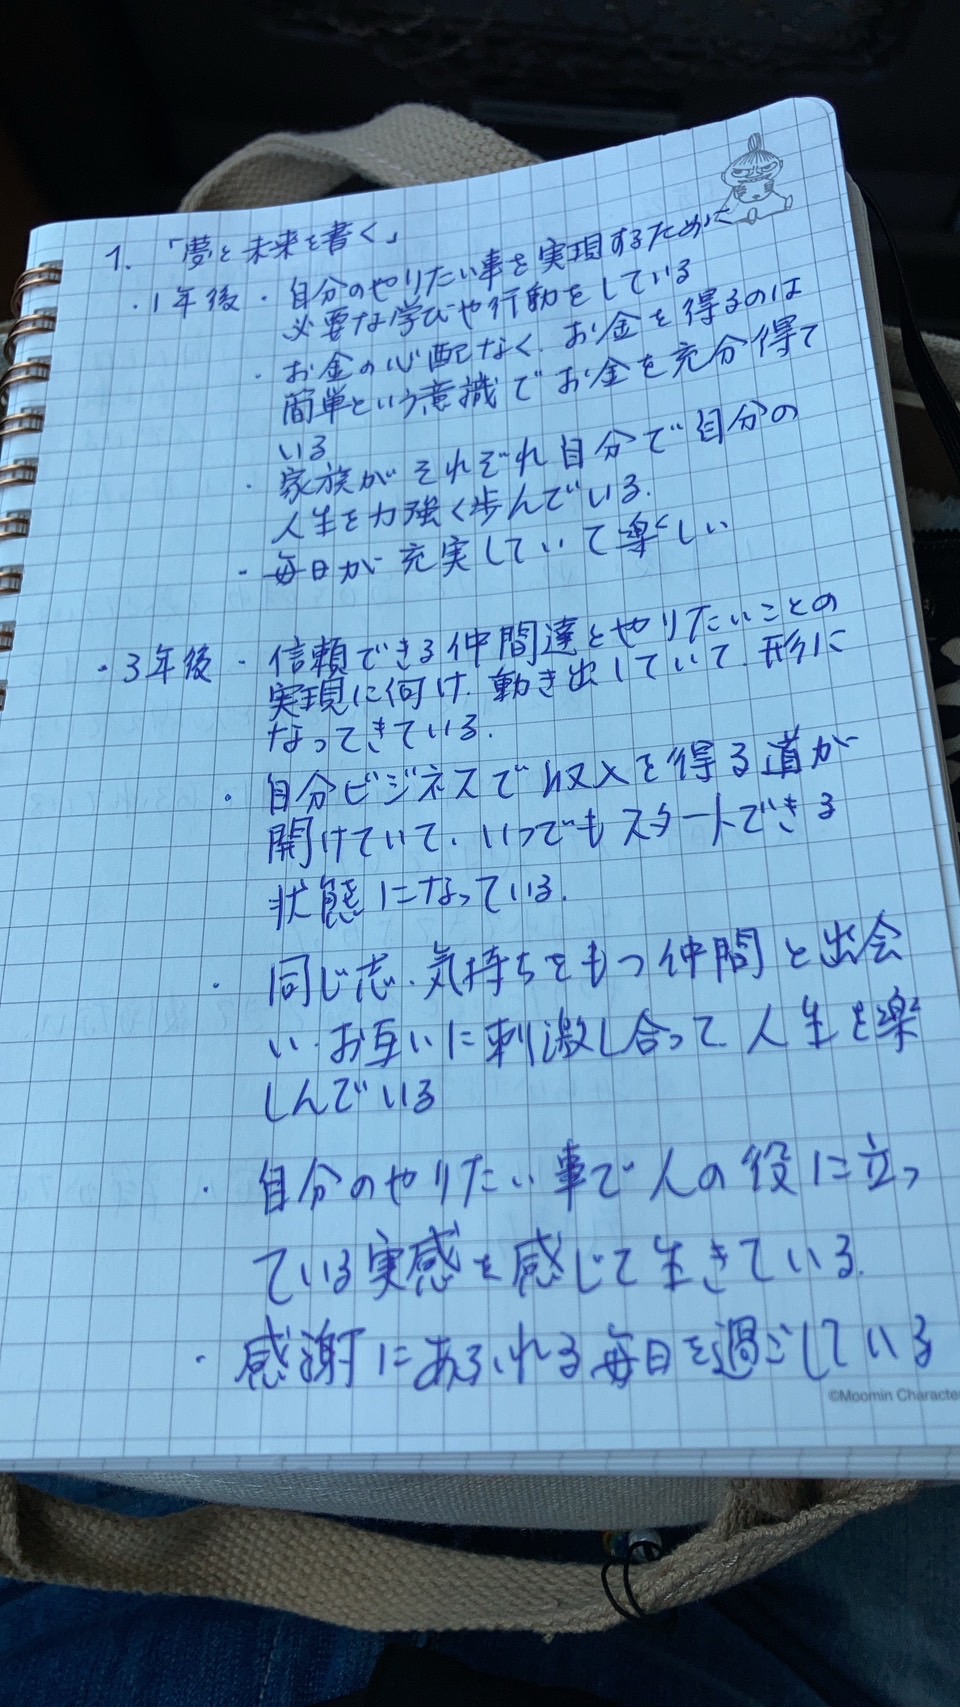 1. 「夢と未来を書く」
・1年後・自分のやりたい事を実現するために
必要な学びや行動をしている
・お金の心配なく、お金を得るのは
簡単という意識でお金を充分得て
いる
・家族がそれぞれ自分で自分の
人生を力強く歩んでいる.
・毎日が充実していて楽しい
・3年後・信頼できる仲間達とやりたいことの
実現に何け、動き出していて、形に
なってきている.
・自分ビジネスで収入を得る道が
開けていて、いつでもスタートできる
状態になっている.
・同じ志、気持ちをもつ仲間と出会
い、お互いに刺激し合って、人生を楽
しんでいる
・自分のやりたい事で人の役に立っ
ている実感を感じて生きている.
・感謝にあふれる毎日を過ごしている
©Moomin Characte